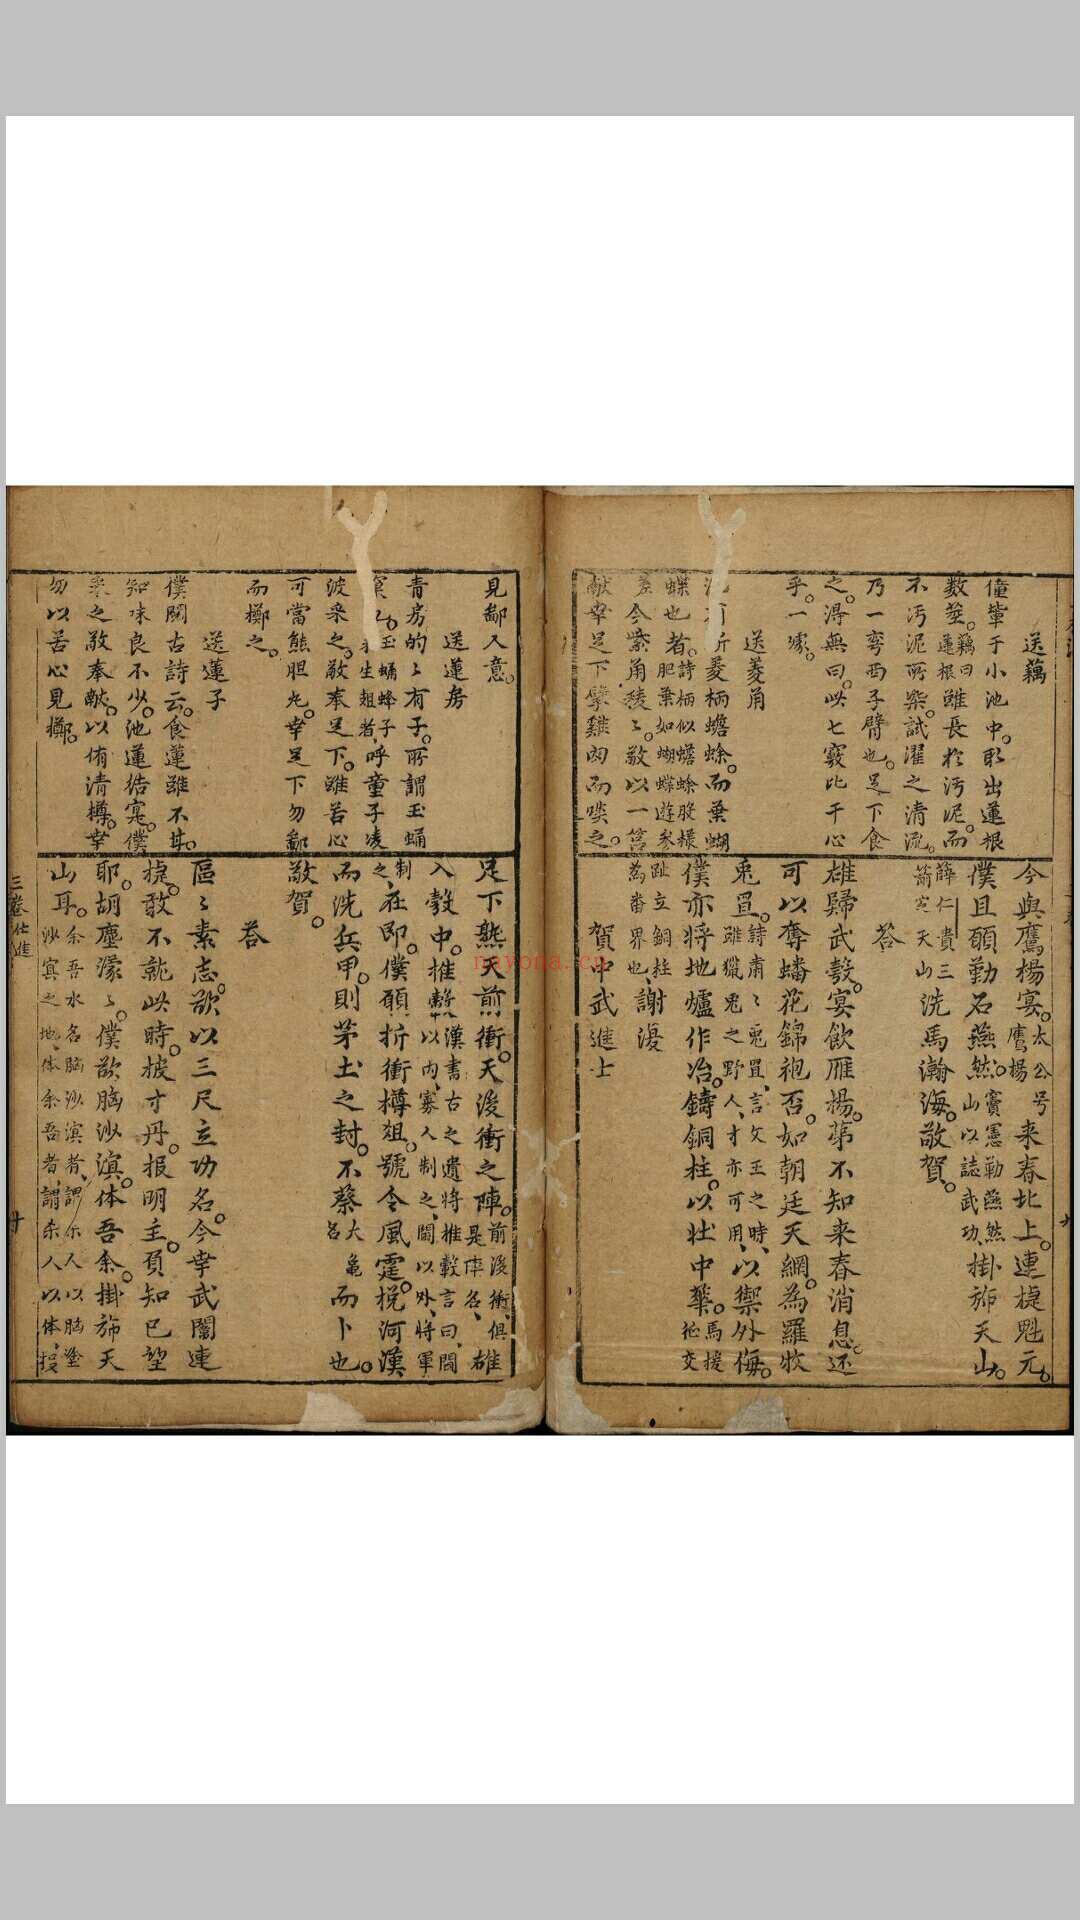 送藕
僮輩于小池中。取出蓮根
数莖。藕曰蓮根雖長於污泥。而
不污泥所染。試濯之清流。
乃一彎西子臂也。足下食
之。得無曰。此七竅比干心
乎。一噱。
送菱角
菱柄蟾蜍。而葉蝴
蝶也者。詩柄似蟾蜍股樣肥葉如蝴蝶遊参
差今紫角稜〻。敬以一筥
献幸足下擘雞肉而啖之。
今與鷹楊宴。太公号鷹楊来春北上。連捷魁元。
僕且願勤石燕然。竇憲勒燕然山以誌武功、掛斾天山。
薛仁貴三箭定天山洗馬瀚海。敬賀。
荅
雄歸武彀。宴飲雁楊。第不知来春消息。还
可以奪蟠花錦袍否。如朝廷天網。為羅牧
兎罝。詩肅〻兎罝、言文王之時、雖獵兎之野人、才亦可用、以禦外侮。
僕亦将地爐作冶。鑄銅柱。以壮中華。馬援征交
趾立銅柱為畨界也、謝謾
賀中武進士
見鄙人意。
送蓮房
青房的〻有子。所謂玉蛹
玉蛹蜂子生爼者、呼童子凌
波采之。敬奉足下。雖苦心
可當熊胆丸。幸足下勿鄙
而擲之。
送蓮子
僕閱古詩云。食蓮雖不甘。
知味良不少。池蓮結寔。僕
采之敬奉献。以侑清樽。幸
勿以苦心見擲。
足下熊天前衝。天後衝之陣。前後衝、俱是陣名、雄
入彀中。推轂漢書古之遣将推轂言曰、閫以内、寡人制之、閫以外、将軍
制之、在即。僕願折衝樽爼。號令風霆。梲河漢
而洗兵甲。則茅土之封。不蔡大龜名而卜也。
敬賀。
荅
區〻素志。欲以三尺立功名。今幸武闈連
捷。敢不就此時。披寸丹。报明主。負知已望
耶。胡塵濛〻。僕欲脑沙滇。体吾余。掛斾天
山耳。余吾水名脑沙滇者、謂尔人以脑塗沙寘之地、体余吾者、謂杀人以体投
三卷仕進
十